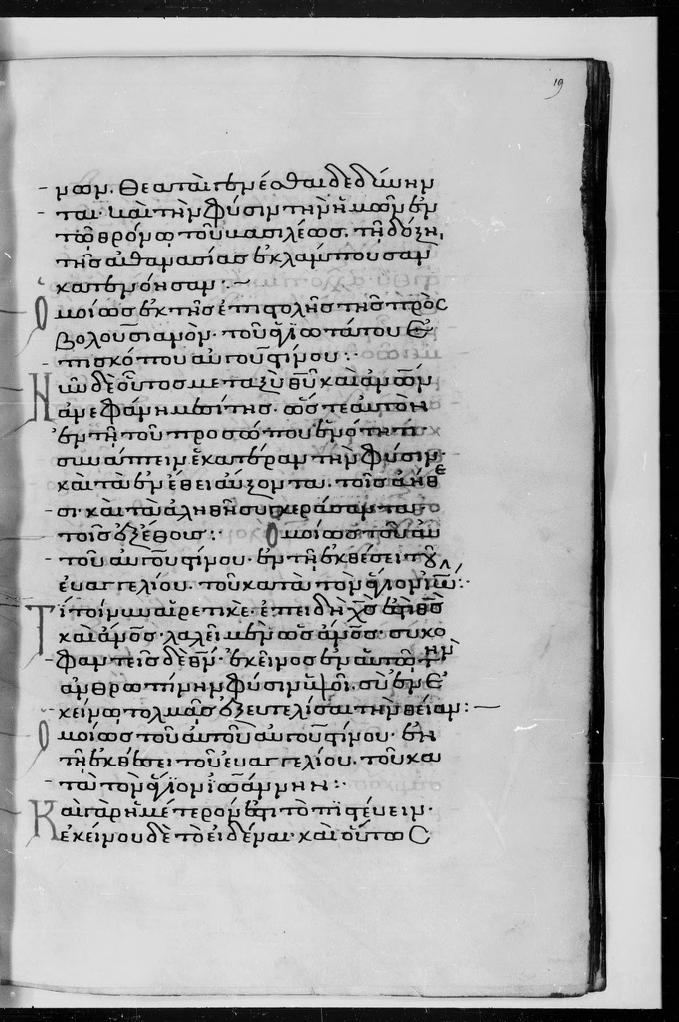 19
νων. Θεαται γενέσθαι δεδώκη
ται· καὶ τὴν φύσιν τὴν ἡμῶν ἐν
τῶ θρόνω τοῦ βασιλέως. τῆ δόξη,
τῆς ἀθανασίας ἐκλάμπουσαν
καὶ γενοῦσαν :~
Ὁμοίως ἐκ τῆς ἐπιστολῆς τῆς πρὸς
βολουσιανὸν· τοῦ ἁγιωτάτου ἐ
πισκόπου αὐγουστίνου :
Νῦν δὲ οὗτος μεταξὺ θῦ καὶ ἀνων
ἀνεφάνη μεσίτης. ὥστε αὐτὸν
ἐν τῆ τοῦ προσώπου ἑνότητι
συνάπτειν ἑκατέραν τὴν φύσιν·
καὶ τὰ ἐν ἔθει αὔξοντα. τοῖς ἀήθε
σι· καὶ τὰ ἀληθῆ συγκεράσαντα
τοῖς ἐξ ἔθους : Ὁμοίως τοῦ αὐ
τοῦ αὐγουστίνου. ἐν τῆ ἐκθέσει τοῦ
εὐαγγελίου. τοῦ κατὰ τὸν ἅγιον ἰω :
Τί τοίνυν αἱρετικὲ. ἐπειδὴ χς ἐστι θς
καὶ ἀνος. λαλεῖ μὲν ὡς ἀνος. συκο
φαντεῖς δὲ θν. ἐκεῖνος ἐν αὐτῶ τὴν
ἀνθρωπίνην φύσιν ὑψοῖ. σὺ ἐν ἐ
κείνω τολμᾶς ἐξευτελίσαι τὴν θείαν :
Ὁμοίως τοῦ αὐτοῦ αὐγουστίνου· ἐν
τῆ ἐκθέσει τοῦ εὐαγγελίου. τοῦ κα
τὰ τὸν ἅγιον ἰωάννην :
Καὶ γὰρ ἡμέτερον ἐστι τὸ πιστεύειν·
ἐκείνου δὲ τὸ εἰδέναι· καὶ οὕτως